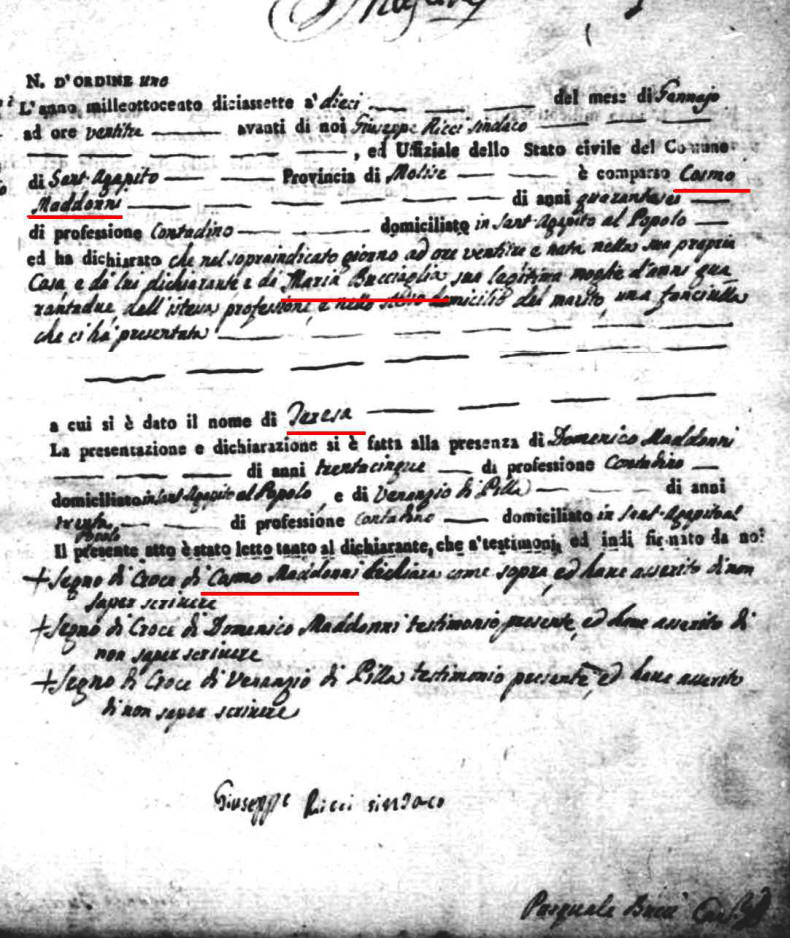 N. D'ORDINE uno
L'anno milleottocento diciassette a' dieci del mese di Gennajo
ad ore ventitre avanti di noi Giuseppe Ricci sindaco
, ed Uffiziale dello Stato civile del Comune
di Sant'Agapito Provincia di Molise è comparso Cosmo
Maddonni di anni quarantasei
di professione Contadino domiciliato in Sant'Agapito al Popolo
ed ha dichiarato che nel sopraindicato giorno ad ore ventitre e nata nella sua propria
Casa e da lui dichiarante e da Maria Bucciaglia sua legitima moglie d'anni qua
rantadue, dell'istessa professione, e nello stesso domicilio del marito, una fanciulla
che ci ha presentata
a cui si è dato il nome di Teresa
La presentazione e dichiarazione si è fatta alla presenza di Domenico Maddonni
di anni trentacinque di professione Contadino
domiciliato in Sant'Agapito al Popolo, e di Venanzio di Pilla di anni
trenta di professione Contadino domiciliato in Sant'Agapito al
Popolo
Il presente atto è stato letto tanto al dichiarante, che a' testimonj, ed indi firmato da noi
+ Segno di Croce di Cosmo Maddonni dichiara come sopra, ed have asserito di non
saper scrivere
+ Segno di Croce di Domenico Maddonni testimonio presente, ed have asserito di
non saper scrivere
+ Segno di Croce di Venanzio di Pilla testimonio presente, ed have asserito
di non saper scrivere
Giuseppe Ricci sindaco
Pasquale Bucci